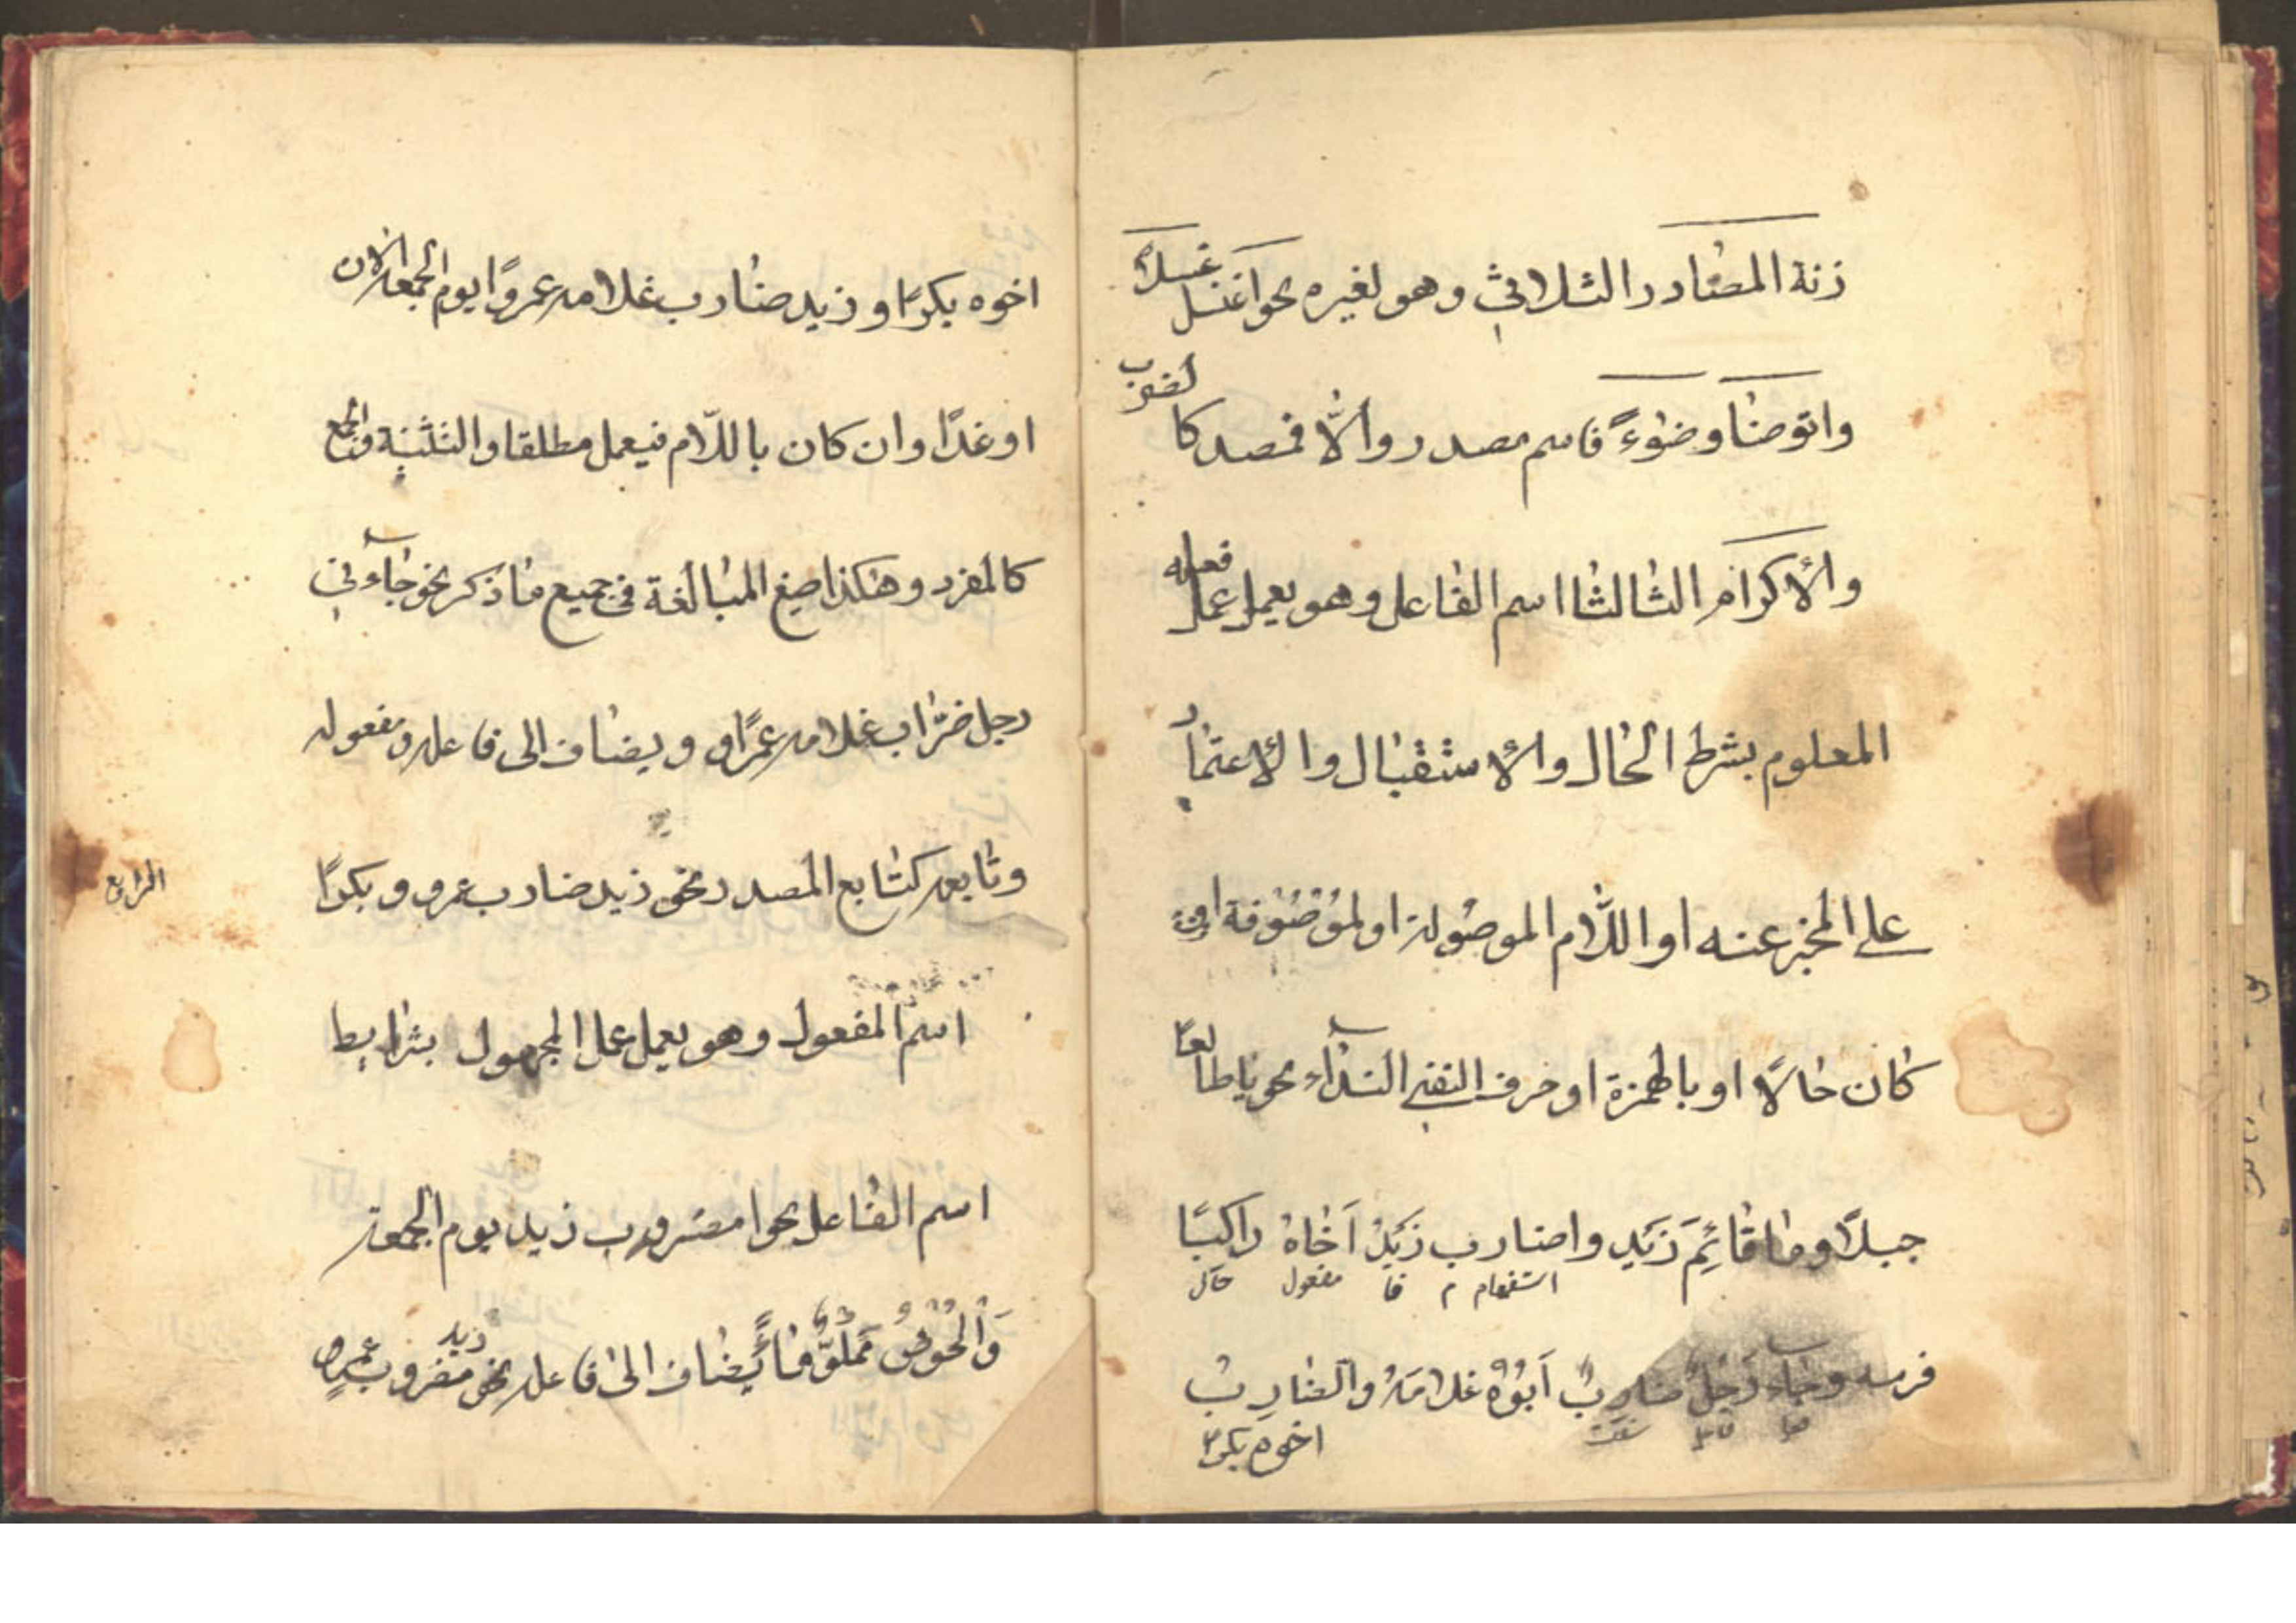 زنة المصادر الثلاثي وهو لغيره نحو اغتسل غسلا
واتوضا وضوءً فاسم مصدر والّا فمصدر كالضرب
والاكرام الثالثا اسم الفاعل وهو يعمل عمل فعله
المعلوم بشرط الحال والاستقبال والاعتماد
على المخبر عنه او اللّام الموصولة او لموصوفة اون
كان حالًا او بالهمزة او حرف النفى النداء نحو ياطالعًا
جبلًا وما قائِمَ زَيد واضارب زَيدٌ اَخاهُ راكبًا
استفهام م فا مفعول حال
فرسه وجاء رَجلٌ ضاربٌ اَبوُهُ غلامَهُ والضارِبُ
نعت
اخوه بكرًا
اخوه بكرًا و زيد ضارب غلامه عمروًا يوم الجمعة الان
او غدًا وان كان باللّام فيعمل مطلقا والتثنية والجمع
كالمفرد وهكذا صيغ المبالغة فى جميع ما ذكر نحو جاءنى
رجل ضرّاب غلامه عمرًاو ويضاف الى فاعله ومفعوله
وتابعه كتابع المصدر نحو زيد ضارب عمرو و بكرًا
الرابع
اسم المفعول وهو يعمل عمل المجهول بشرايط
اسم الفاعل نحو امضروب زيد يوم الجمعة
وَالحُوضُ مَملوٌّ ماءً يضاف الى فاعله نحو زيد مضروب عمرو